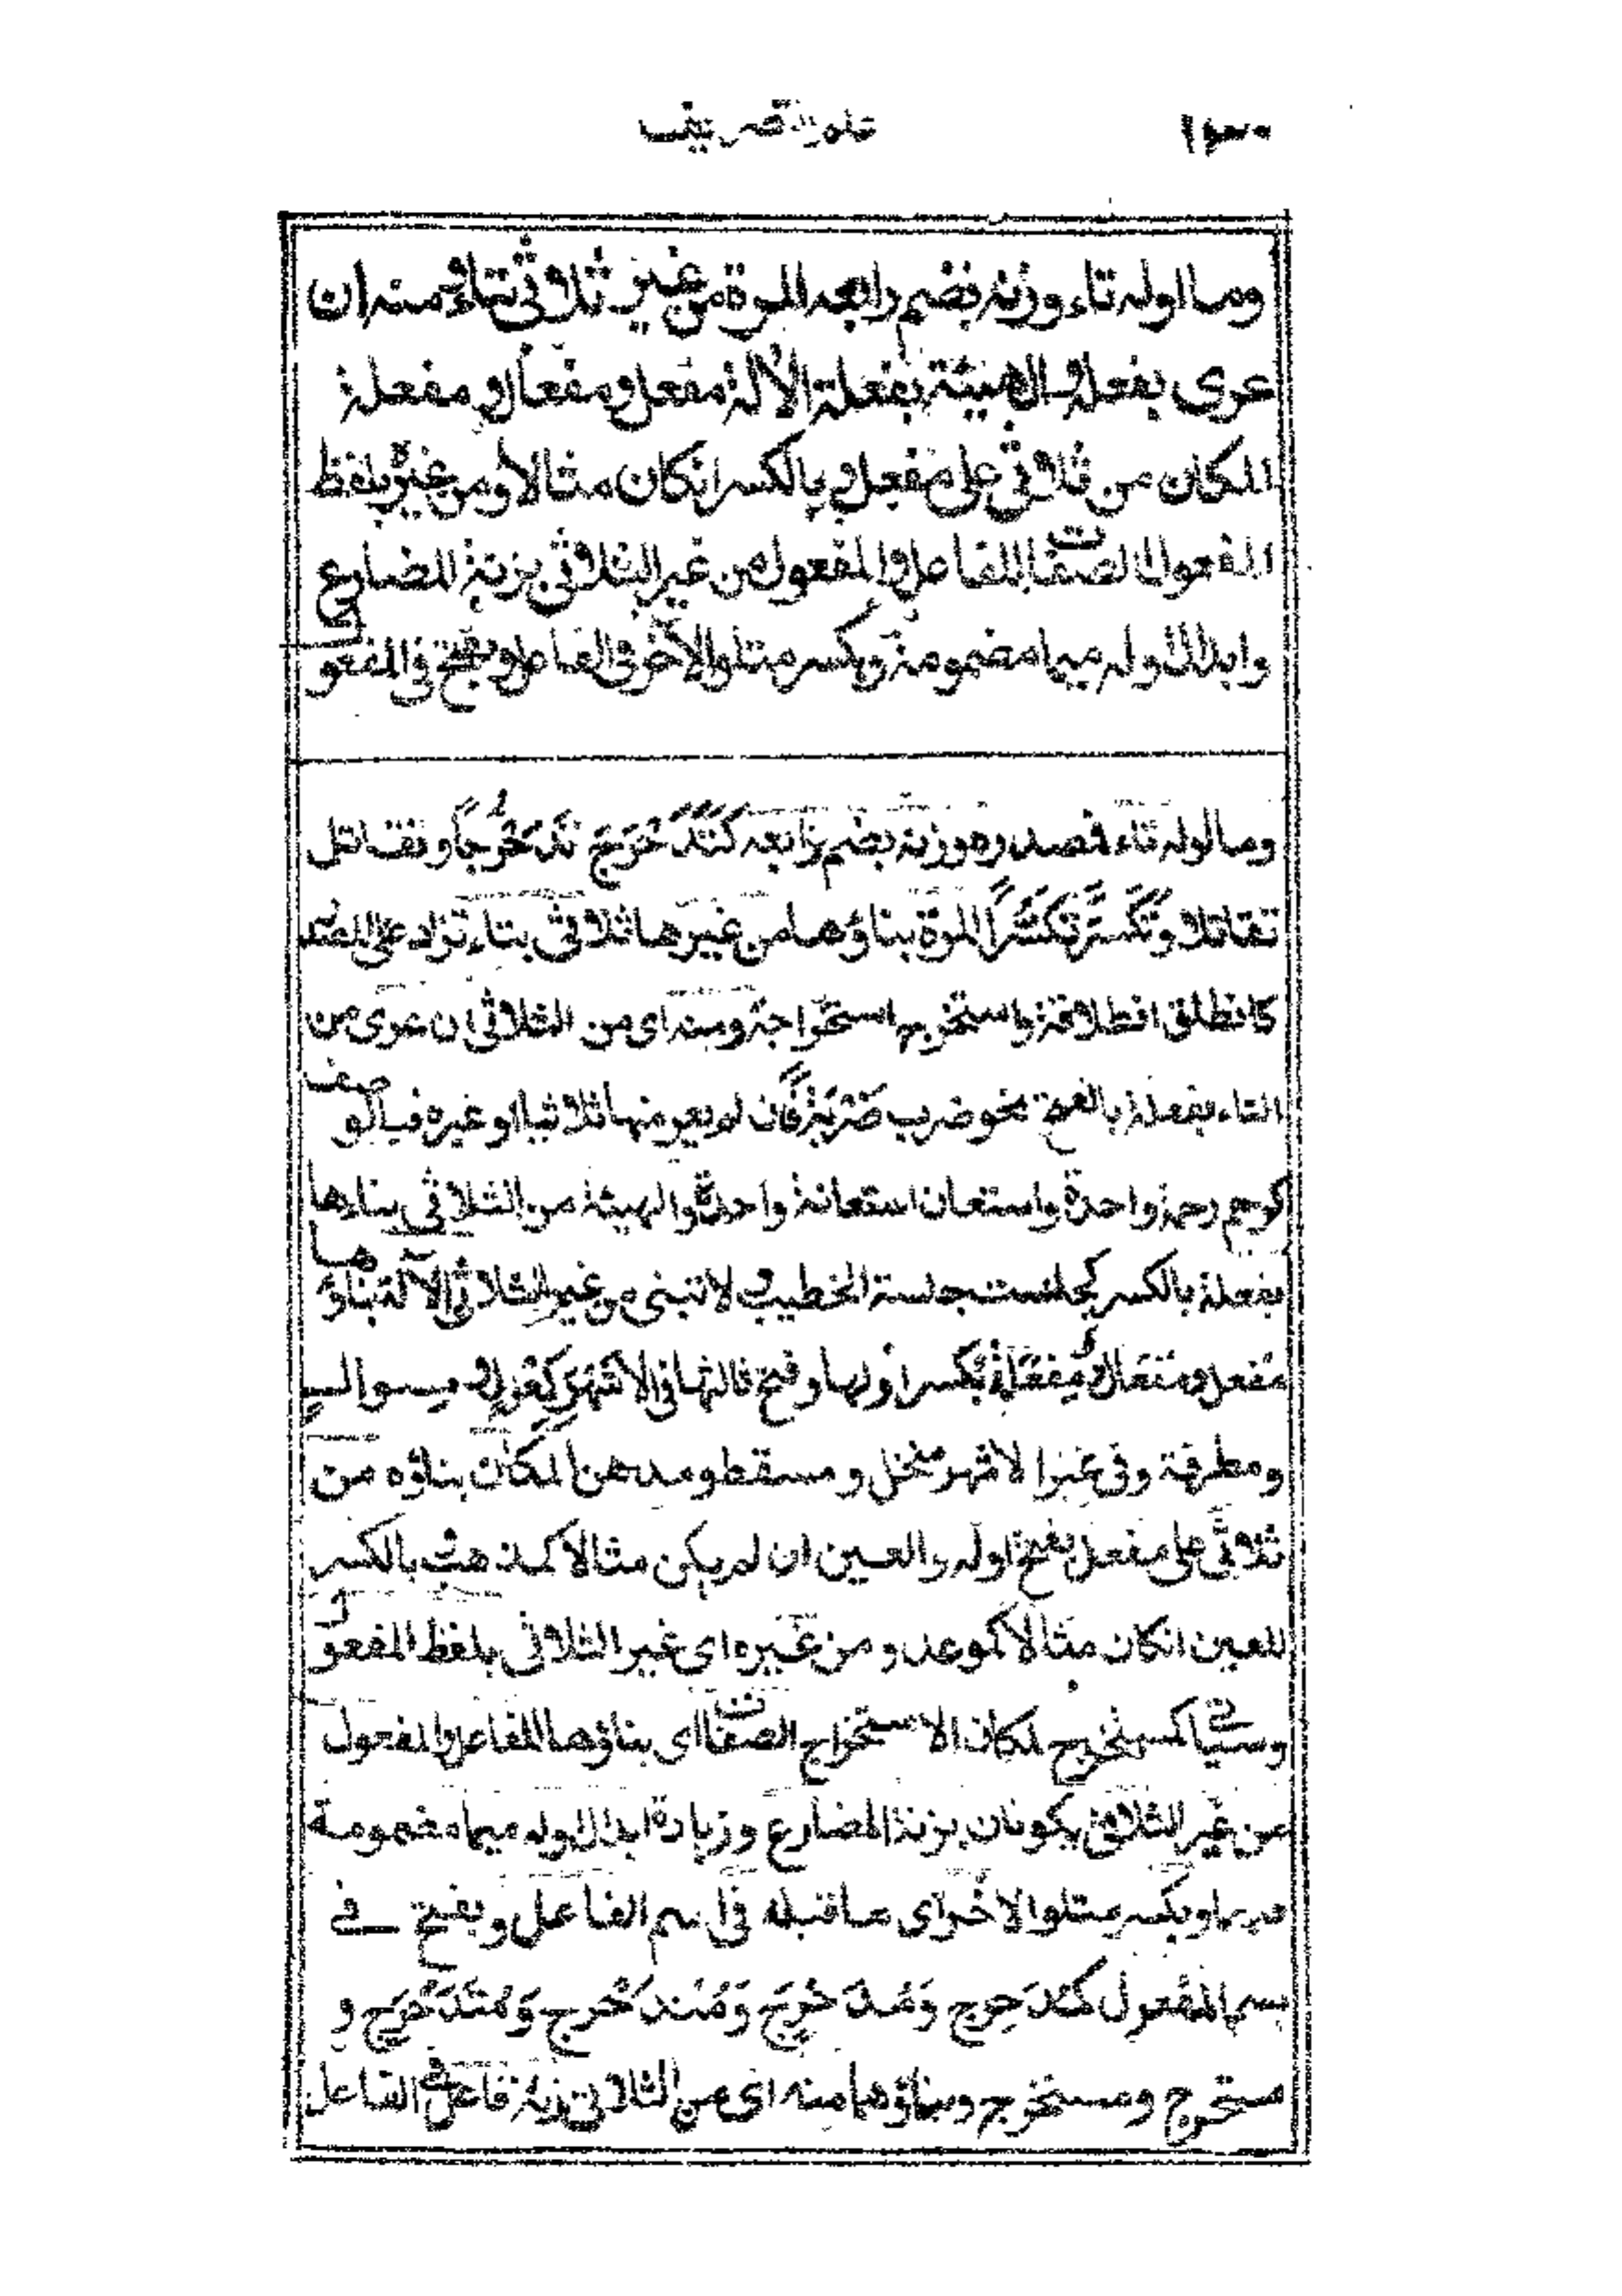 علم التصريف
وما اوله تاء وزنه بضم رابعه المرة من غير ثلاثي بتاء ومنه ان
عرى بفعلة والهيئة بفعلة الآلة مفعل ومفعال ومفعلة
المكان من ثلاثي على مفعل وبالكسر انكان مثالا ومن غيره بلفظ
المفعول الصفات للفاعل والمفعول من غير الثلاثي بزنة المضارع
وابدال اوله ميما مضمومة ويكسر متلو الآخر في الفاعل ويفتح في المفعول
وما اوله تاء فمصدره وزنه بضم رابعه كَتَدَحْرَجَ تَدَحْرُجاً وتقاتل
تقاتلا وتَكَسَّرَ تَكَسُّراً المرة بناؤها من غير ثلاثي بتاء تزاد على المصدر
كانطلق انطلاقة واستخرج استخراجة ومنه اى من الثلاثي ان عرى من
التاء بفعلة بالفتح نحو ضرب ضَرْبَةً فان لم يعر منها ثلاثيا او غيره فبالوصف
كرحم رحمة واحدة واستعان استعانة واحدة والهيئة من الثلاثي بناءها
بفعلة بالكسر كجلست جلسة الخطيب ولا تبنى من غير الثلاثي الآلة بناؤها
مفعل ومفعال ومفعلة بكسر اولها وفتح ثالثها في الاشهر كمغزل وسواك
ومطرقة وفي غير الاشهر منخل ومسقط ومدهن المكان بناؤه من
ثلاثي على مفعل بفتح اوله والعين ان لم يكن مثالا كمذهب وبالكسر
للعين انكان مثالا كموعد ومن غيره اى غير الثلاثي بلفظ المفعول
وسيأتي كمستخرج لمكان الاستخراج الصفات اى بناؤها للفاعل والمفعول
من غير الثلاثي يكونان بزنة المضارع وزيادة ابدال اوله ميما مضمومة
ويكسر متلو الآخر اى ما قبله في اسم الفاعل ويفتح في
اسم المفعول كمُدَحرِج وَمُدَحرَج وَمُتَدَحْرِج وَمُتَدَحْرَج و
مستخرج ومستخرج وبناؤهما منه اى من الثلاثي زنة فاعل في الفاعل